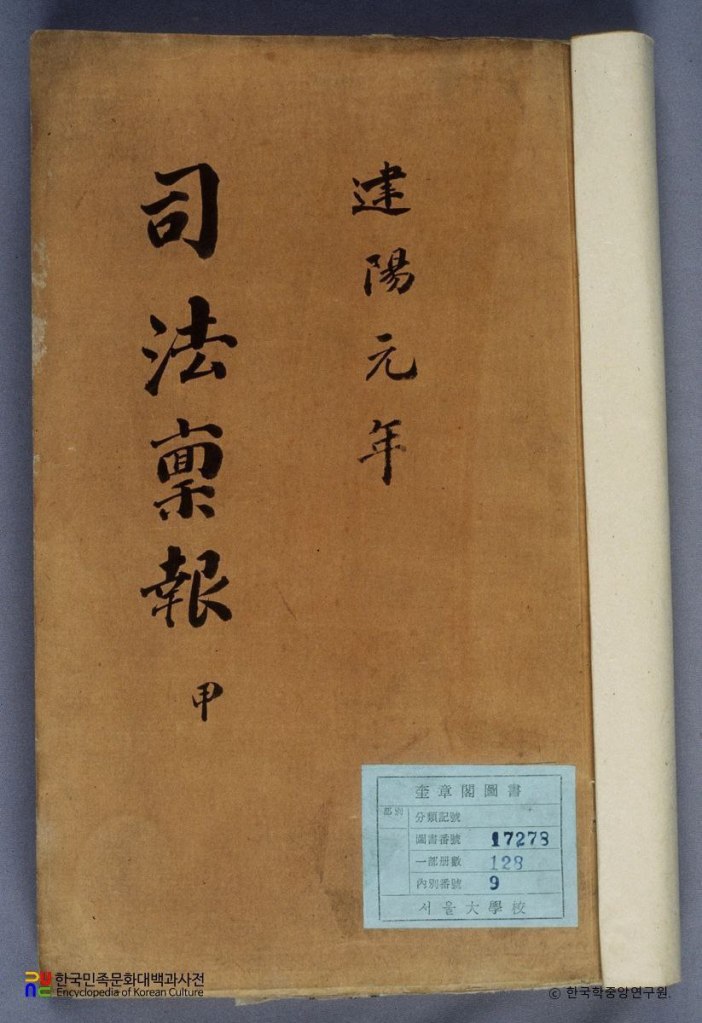 建陽元年
司法稟報 甲
奎章閣圖書
部別
分類記號
圖書番號 17278
一部册數 128
內別番號 9
서울大學校
한국민족문화대백과사전
Encyclopedia of Korean Culture
© 한국학중앙연구원.